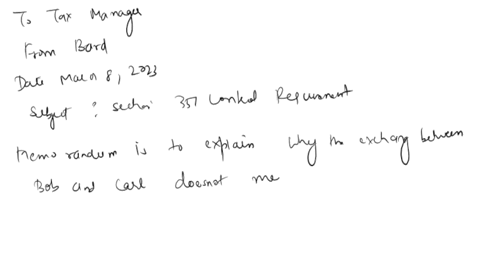 To Tax Manager
From Bard
Date March 8, 2023
Subject : section 351 Control Requirement
Memorandum is to explain Why the exchange between
Bob and Carl doesnot me